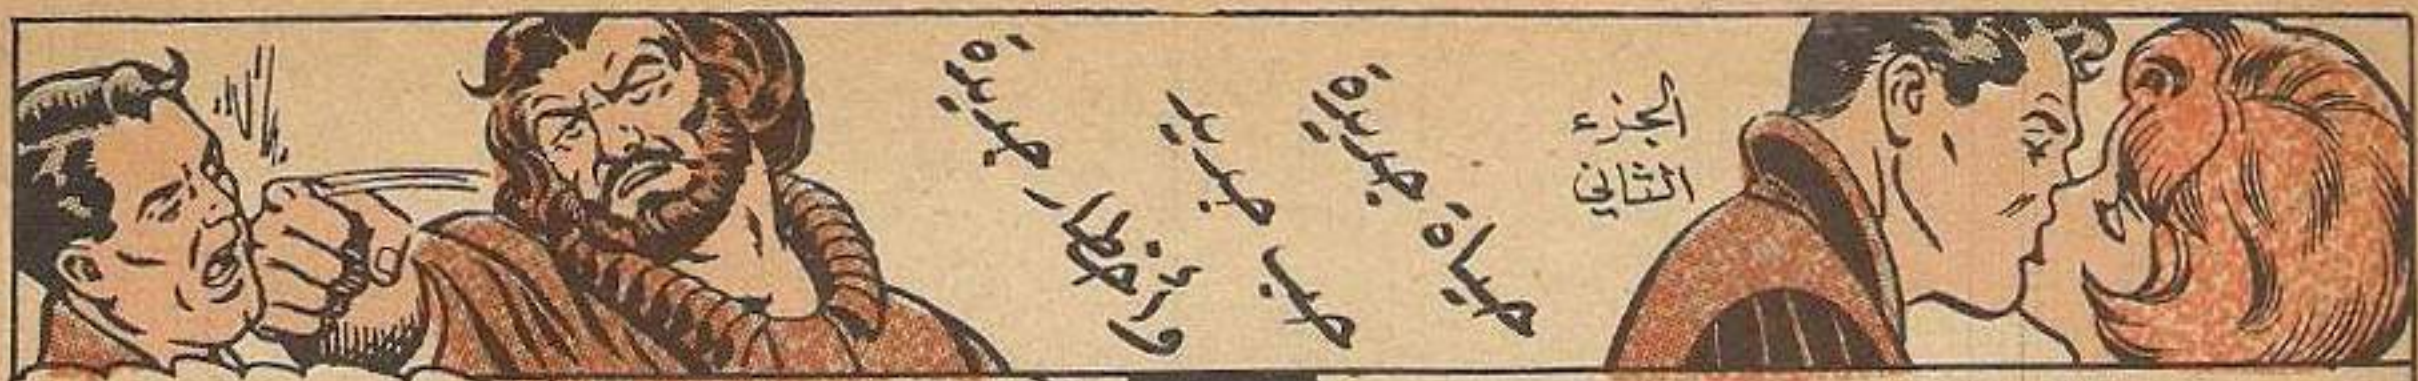 الجزء
الثاني
حياة جديدة
حب جديد
وأخطار جديدة